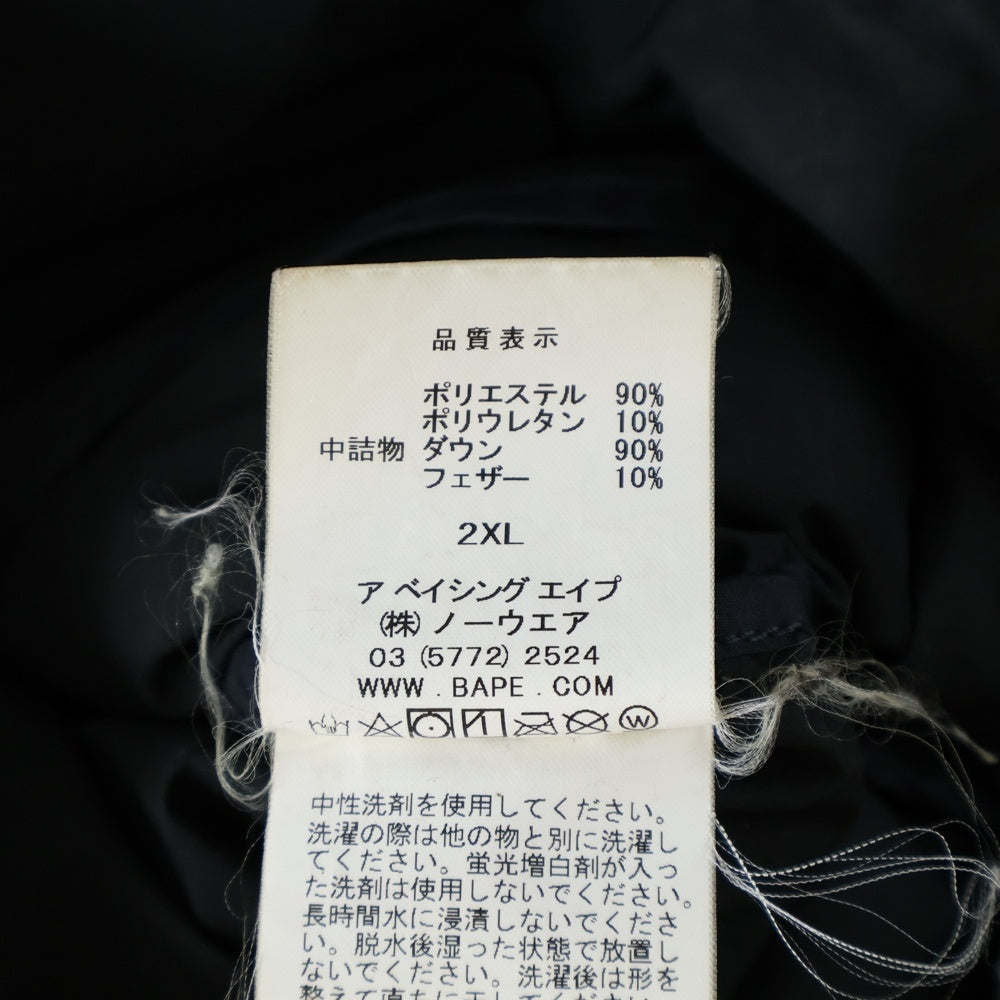 品質表示
ポリエステル 90%
ポリウレタン 10%
中詰物 ダウン 90%
フェザー 10%
2XL
ア ベイシング エイプ
(株) ノーウエア
03 (5772) 2524
WWW . BAPE . COM
中性洗剤を使用してください。
洗濯の際は他の物と別に洗濯し
てください。蛍光増白剤が入っ
た洗剤は使用しないでください。
長時間水に浸漬しないでくださ
い。脱水後湿った状態で放置し
ないでください。洗濯後は形を
整えて直ちに干してください。